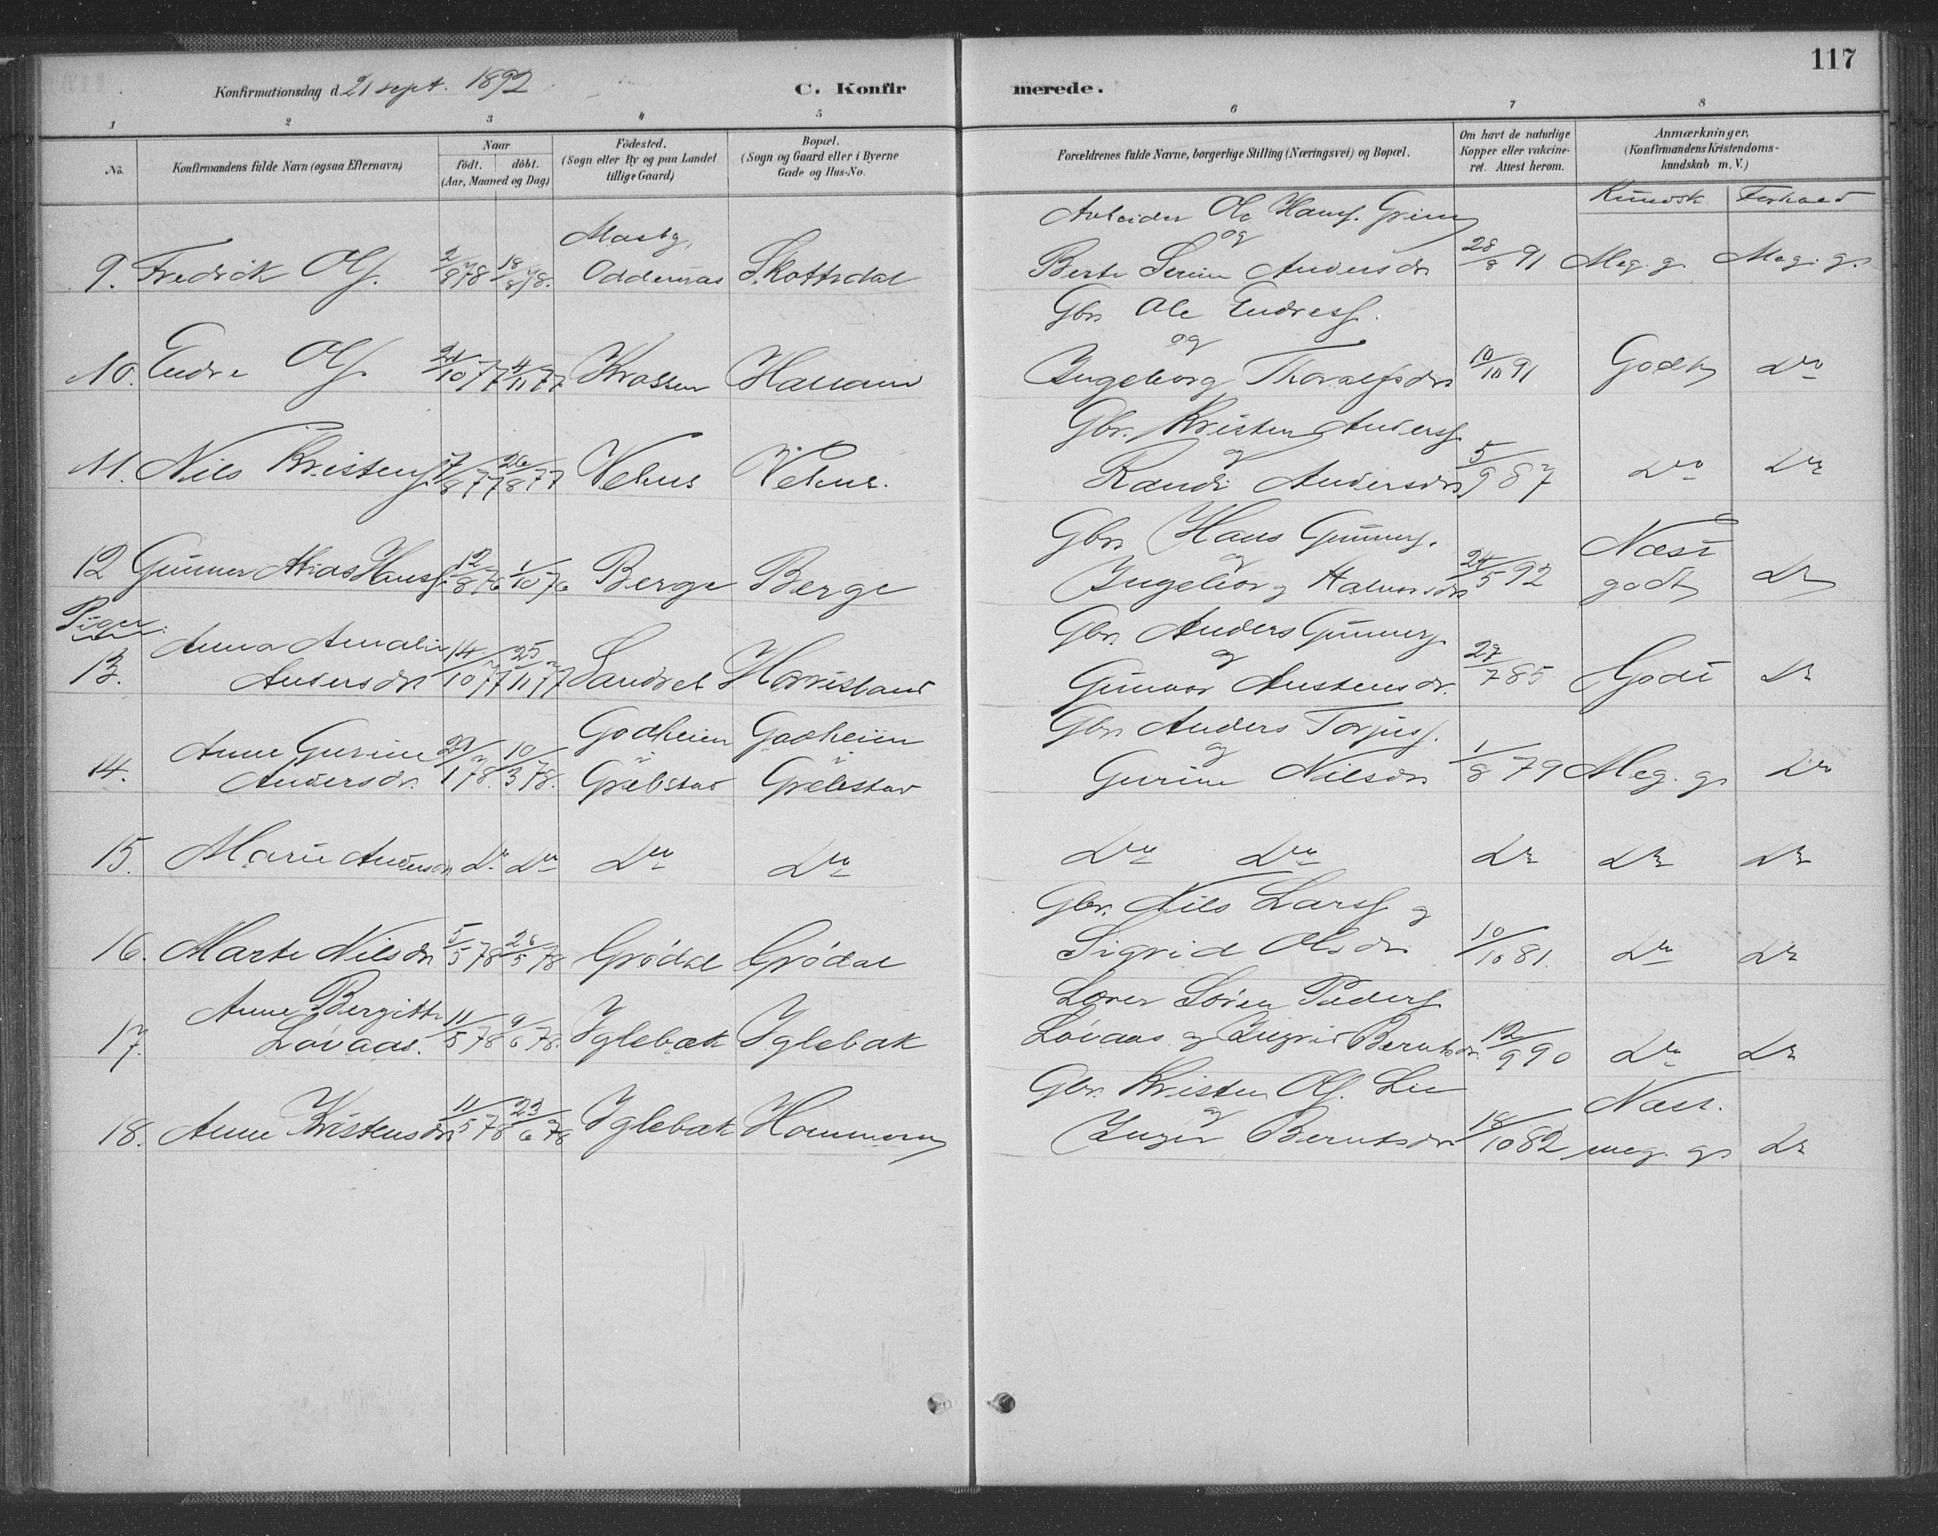 117
Konfirmationsdag d. 21 sept. 1892 C. Konfirmerede.
1 2 3 4 5 6 7 8
No. Konfirmandens fulde Navn (ogsaa Efternavn) Naar födt. döbt. (Aar, Maaned og Dag) Födested. (Sogn eller By og paa Landet tillige Gaard) Bopæl. (Sogn og Gaard eller i Byerne Gade og Hus-No. Forældrenes fulde Navne, borgerlige Stilling (Næringsvei) og Bopæl. Om havt de naturlige Kopper eller vakcineret. Attest herom. Anmærkninger, (Konfirmandens Kristendomskundskab m. V.)
Kundsk. Forhold
Mosby, Arbeider Ole Hansf. Grim og
9. Fredrik Olf. 2/8 78 18/8 78. Oddernæs Skottsdal Berte Serine Andersdr 28/8 91 Meg. g. Meg. g.
Gbr. Ole Endresf. og
10. Endre Olf. 21/10 77 4/11 77 Krossen Hanam Ingeborg Thoralfsdr 10/10 91 Godt Do
Gbr. Kristen Andersf og
11. Nils Kristenf. 7/8 77 26/8 77 Vehus Vehus. Randi Andersdr 5/9 87 Do Do
Gbr. Hans Gunnersf. og Næst
12 Gunner Hansf. 12/8 76 1/10 76 Berge Berge Ingeborg Halvorsdr 24/5 92 godt Do
Piger. Anna Amalie Gbr. Anders Gunnersf. og
13. Andersdr 14/10 77 25/11 77 Sandvel Gunvor Austensdr. 27/7 85 Godt Do
Anne Gurine Godheien Godheien Gbr. Anders Torjusf. og
14. Andersdr. 29/1 78. 10/3 78. Grebstad Grebstad Gurine Nilsdr 1/8 79 Meg. g. Do
15. Marie Andersdr Do Do Do Do Do Do Do Do Do
Gbr. Nils Larsf og
16. Marte Nilsdr 5/5 78 26/5 78 Grödal Grödal Sigrid Olsdr 10/10 81. Do Do
Anne Bergitte Lærer Sören Pedersf
17. Lövaas. 11/5 78 9/6 78. Iglebæk Iglebak Lövaas og Ingrid Berntsdr. 12/9 90 Do Do
Gbr. Kristen Olf. Lie og Næst.
18. Anne Kristensdr 11/5 78 23/6 78 Iglebæk Hommen Inger Berntsdr 18/10 82 meg. g. Do